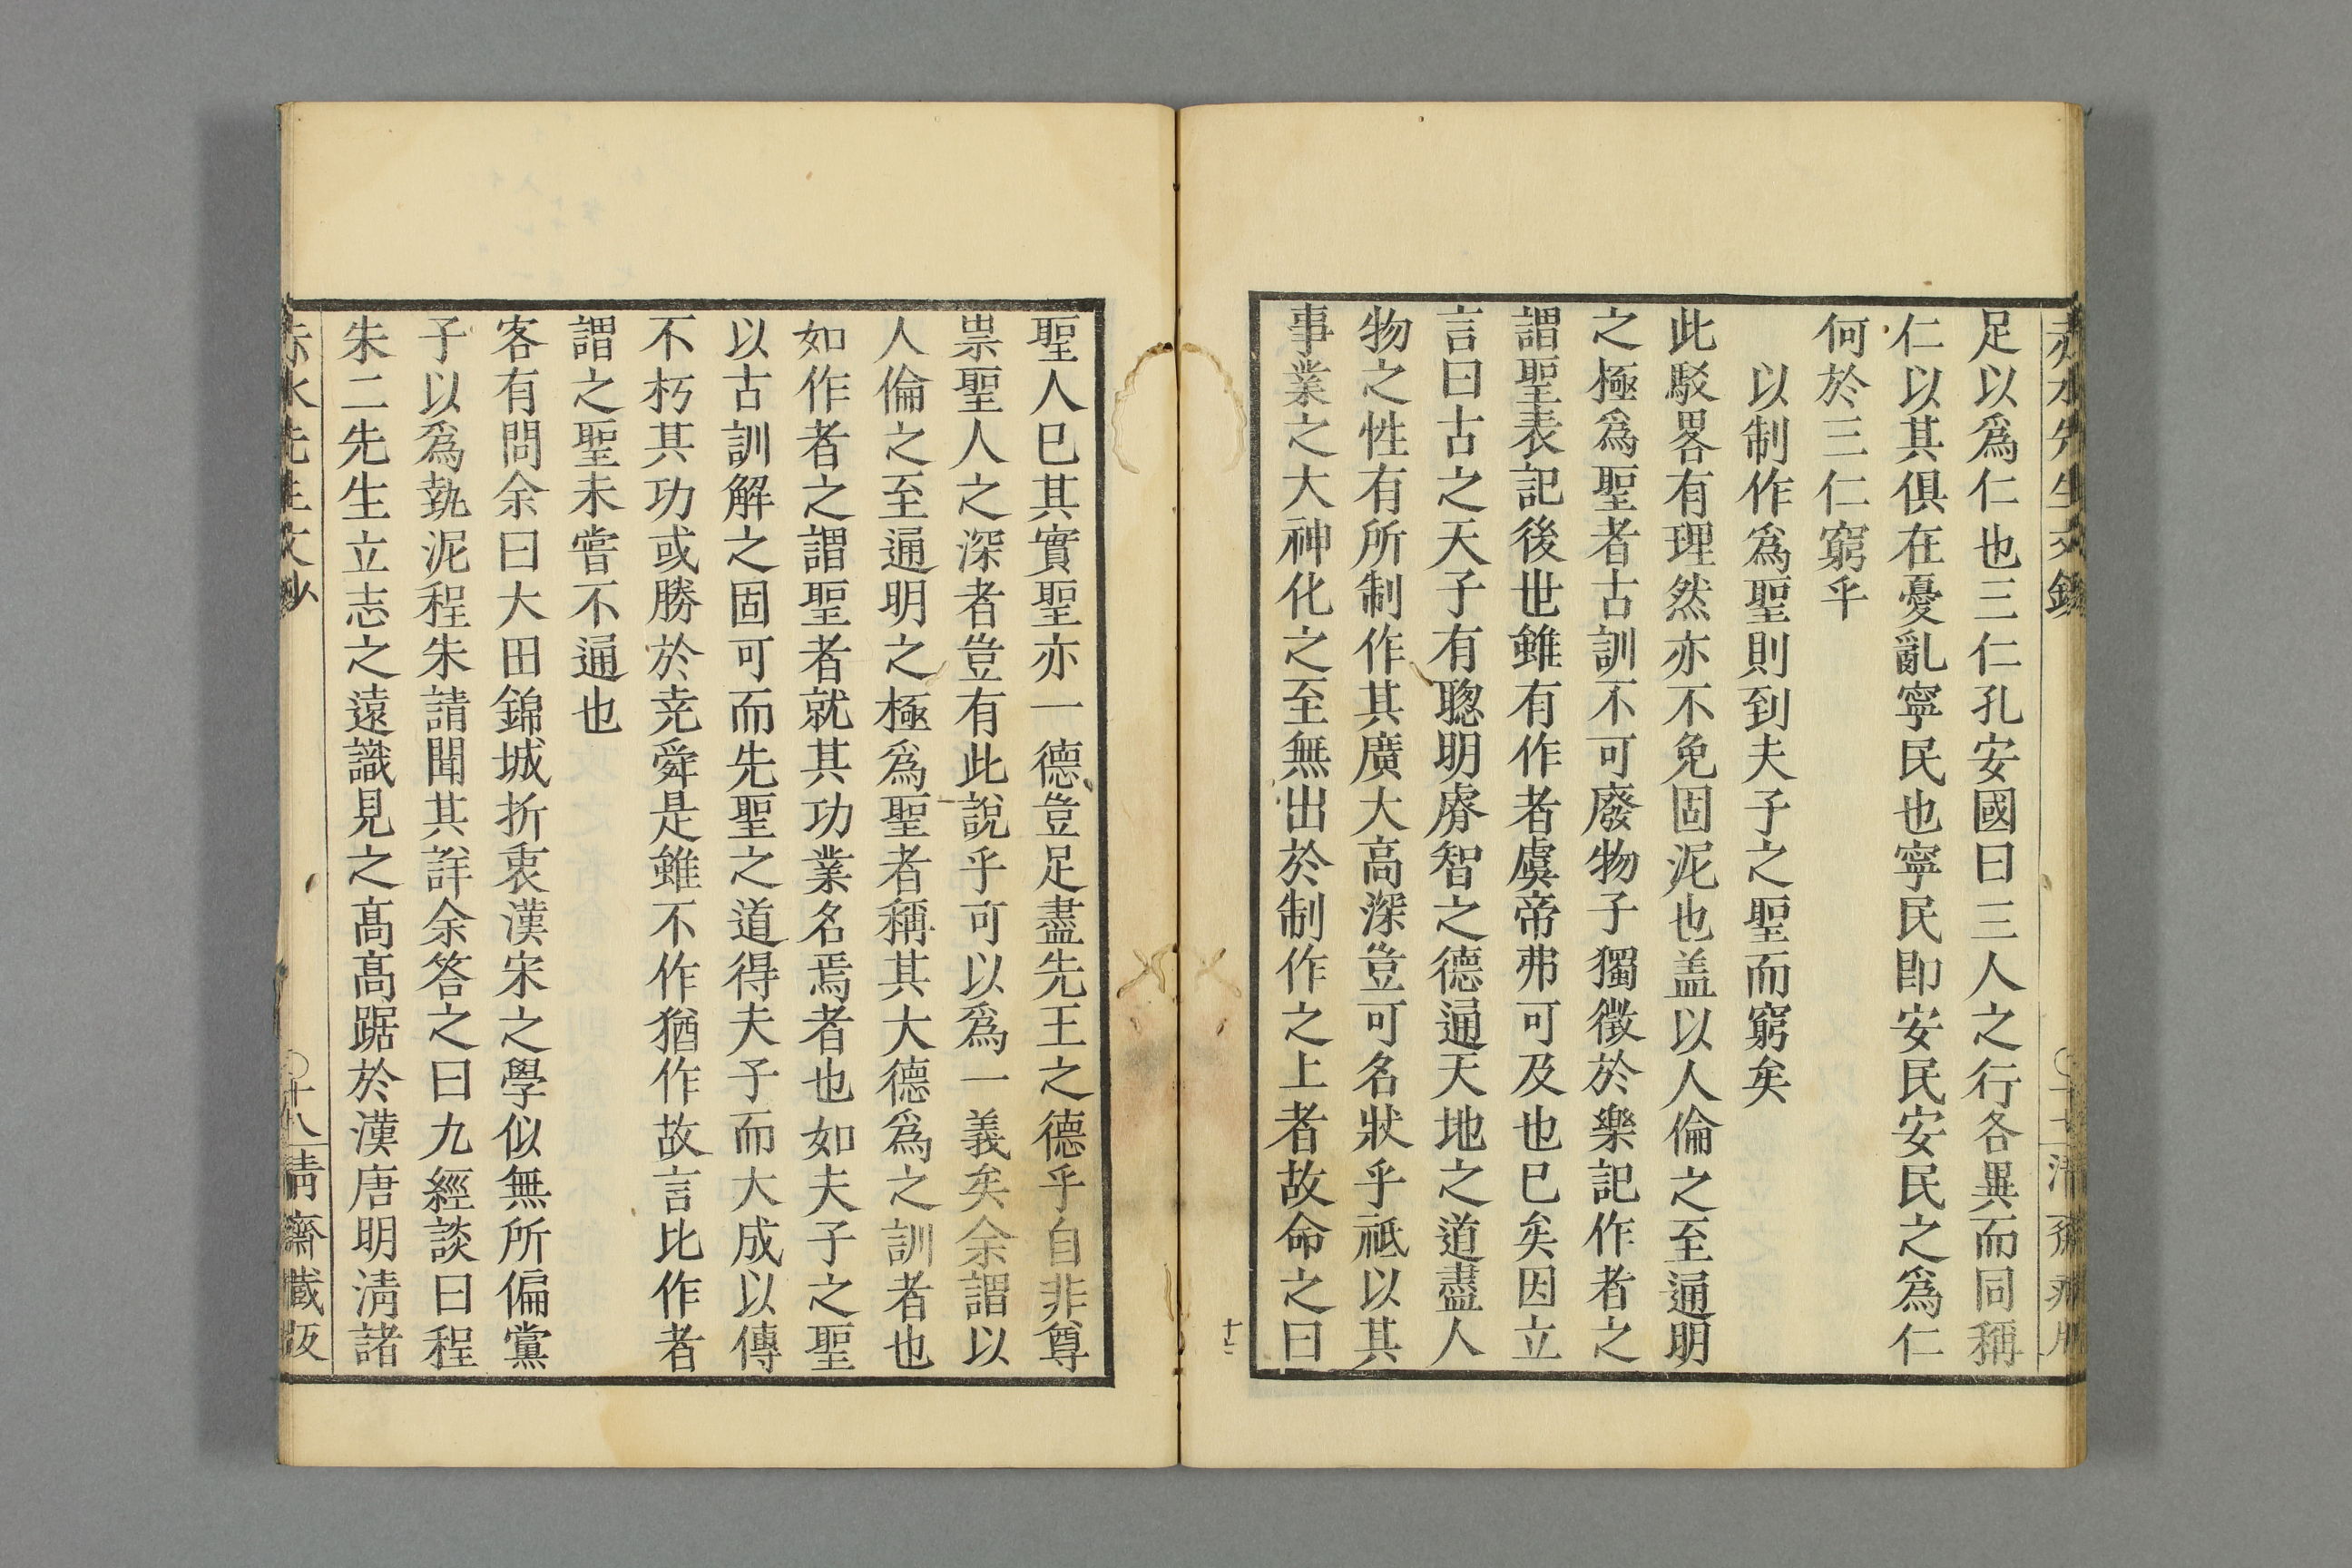 足以爲仁也三仁孔安國曰三人之行各異而同稱
仁以其俱在憂亂寧民也寧民即安民安民之爲仁
何於三仁窮乎
以制作爲聖則到夫子之聖而窮矣
此駁畧有理然亦不免固泥也盖以人倫之至通明
之極爲聖者古訓不可廢物子獨徴於樂記作者之
謂聖表記後世雖有作者虞帝弗可及也已矣因立
言曰古之天子有聰明睿智之德通天地之道盡人
物之性有所制作其廣大高深豈可名狀乎祗以其
事業之大神化之至無出於制作之上者故命之曰
十二
聖人已其實聖亦一德豈足盡先王之德乎自非尊
祟聖人之深者豈有此說乎可以爲一義矣余謂以
人倫之至通明之極爲聖者稱其大德爲之訓者也
如作者之謂聖者就其功業名焉者也如夫子之聖
以古訓解之固可而先聖之道得夫子而大成以傳
不朽其功或勝於尭舜是雖不作猶作故言比作者
謂之聖未嘗不通也
客有問余曰大田錦城折衷漢宋之學似無所偏黨
子以爲執泥程朱請聞其詳余答之曰九經談曰程
朱二先生立志之遠識見之髙髙踞於漢唐明淸諸
赤水先生文鈔
十八
靑齋藏版